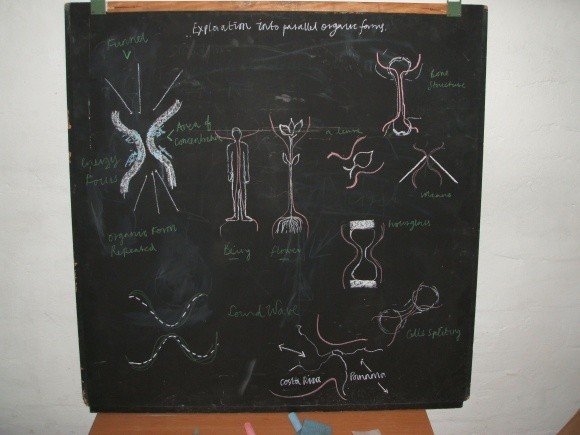 Exploration into parallel organic forms.
Funnel
Bone
Structure
Area of
Concentration
a lense
Energy
Focus
hourglass
Organic Form
Repeated
Being
flower
Sound Wave
Cells Spliting
Costa Rica
Panama